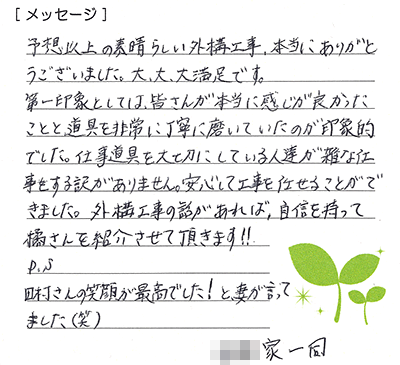 [メッセージ]
予想以上の素晴らしい外構工事、本当にありがと
うございました。大、大、大満足です。
第一印象としては、皆さんが本当に感じが良かった
ことと道具を非常に丁寧に磨いていたのが印象的
でした。仕事道具を大切にしている人達が雑な仕
事をする訳がありません。安心して工事を任せることがで
きました。外構工事の話があれば、自信を持って
橘さんを紹介させて頂きます!!
P.S
田村さんの笑顔が最高でした!と妻が言って
ました(笑)
家一同